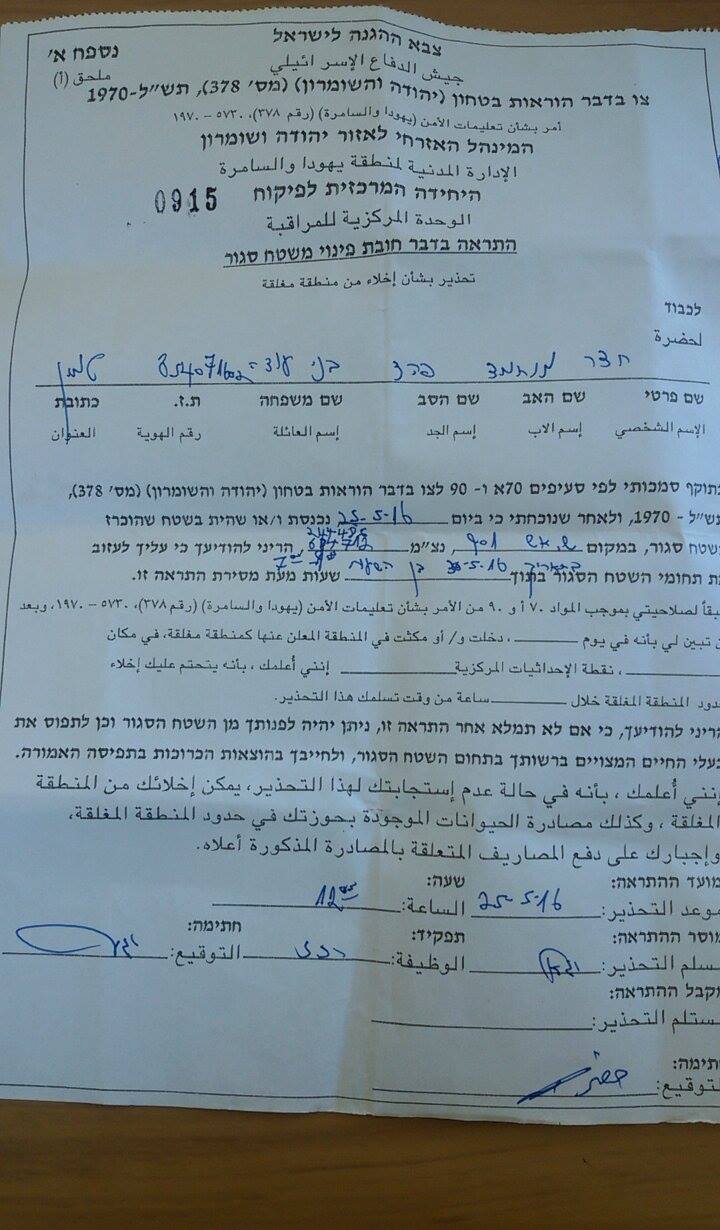 צבא ההגנה לישראל
נספח א'
جيش الدفاع الإسرائيلي
ملحق (أ)
צו בדבר הוראות בטחון (יהודה והשומרון) (מס' 378), תש"ל-1970
أمر بشأن تعليمات الأمن (يهودا والسامرة) (رقم ٣٧٨)، ٥٧٣٠ – ١٩٧٠
המינהל האזרחי לאזור יהודה ושומרון
الإدارة المدنية لمنطقة يهودا والسامرة
היחידה המרכזית לפיקוח 0915
الوحدة المركزية للمراقبة
התראה בדבר חובת פינוי משטח סגור
تحذير بشأن إخلاء من منطقة مغلقة
לכבוד
لحضرة
חצר מוחמד פהד בני עודה
שם פרטי שם האב שם הסב שם משפחה ת.ז. כתובת
الإسم الشخصي إسم الاب إسم الجد إسم العائلة رقم الهوية العنوان
בתוקף סמכותי לפי סעיפים 70א ו- 90 לצו בדבר הוראות בטחון (יהודה והשומרון) (מס' 378),
תש"ל - 1970, ולאחר שנוכחתי כי ביום 25-5-16 נכנסת ו/או שהית בשטח שהוכרז
שטח סגור, במקום ש.אש 901, נצ"מ, הריני להודיעך כי עליך לעזוב
את תחומי השטח הסגור בתוך שעות מעת מסירת התראה זו.
طبقاً لصلاحيتي بموجب المواد ٧٠ أ و ٩٠ من الأمر بشأن تعليمات الأمن (يهودا والسامرة) (رقم ٣٧٨)، ٥٧٣٠ – ١٩٧٠، وبعد
أن تبين لي بأنه في يوم ، دخلت و/ أو مكثت في المنطقة المعلن عنها كمنطقة مغلقة، في مكان
، نقطة الإحداثيات المركزية إنني أُعلمك ، بأنه يتحتم عليك إخلاء
حدود المنطقة المغلقة خلال ساعة من وقت تسلمك هذا التحذير.
הריני להודיעך, כי אם לא תמלא אחר התראה זו, ניתן יהיה לפנותך מן השטח הסגור וכן לתפוס את
בעלי החיים המצויים ברשותך בתחום השטח הסגור, ולחייבך בהוצאות הכרוכות בתפיסה האמורה.
إنني أُعلمك ، بأنه في حالة عدم إستجابتك لهذا التحذير، يمكن إخلائك من المنطقة
المغلقة ، وكذلك مصادرة الحيوانات الموجودة بحوزتك في حدود المنطقة المغلقة،
وإجبارك على دفع المصاريف المتعلقة بالمصادرة المذكورة أعلاه.
מועד ההתראה: שעה:
موعد التحذير: 25-5-16 الساعة: 12
מוסר ההתראה: תפקיד: חתימה:
مسلم التحذير: الوظيفة: التوقيع:
מקבל ההתראה:
مستلم التحذير:
חתימה:
التوقيع: